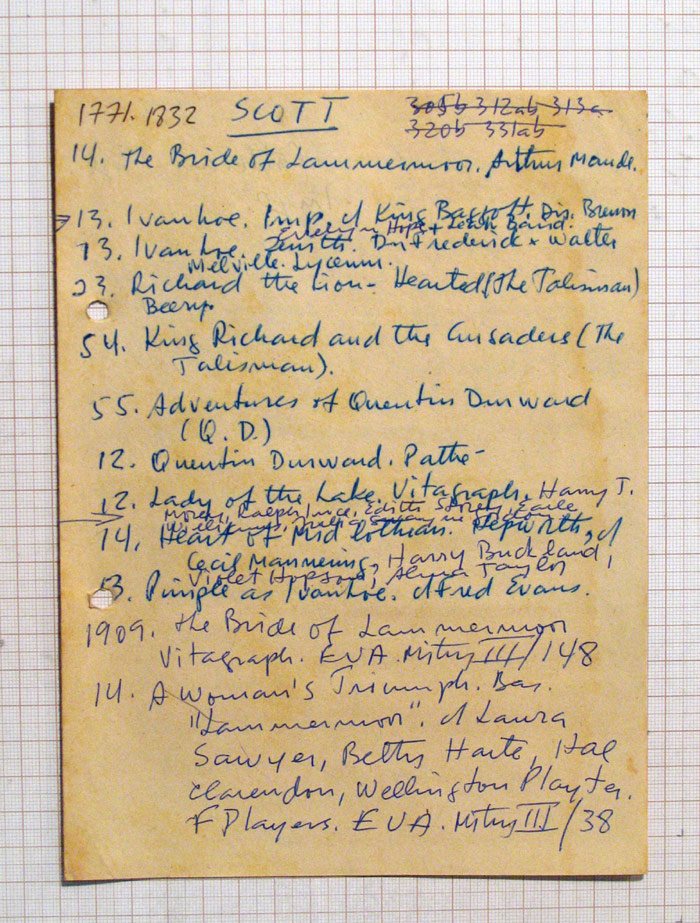 1771. 1832 SCOTT 305b 312ab 313a
320b 331ab
14. The Bride of Lammermoor. Arthur Maude.
13. Ivanhoe. Imp. cf King Baggott. Dir. Brenon
Evelyn Hope + Leah Baird.
13. Ivanhoe. Zenith. Dir Frederick & Walter
Melville. Lyceum.
23. Richard the Lion-Hearted (The Talisman)
Beery
54. King Richard and the Crusaders (The
Talisman).
55. Adventures of Quentin Durward
(Q. D.)
12. Quentin Durward. Pathe
12. Lady of the Lake. Vitagraph, Harry T.
Morey, Ralph Ince, Edith Storey, Earle
Williams,
14. Heart of Mid Lothian. Hepworth, cf
Cecil Mannering, Harry Buckland,
Violet Hopson, Alma Taylor
13. Pimple as Ivanhoe. cf Fred Evans.
1909. The Bride of Lammermoor
Vitagraph. EVA. Mitry III/148
14. A Woman's Triumph. Bas.
"Lammermoor". cf Laura
Sawyer, Betty Harte, Hal
Clarendon, Wellington Playter.
F Players. EVA. Mitry III/38